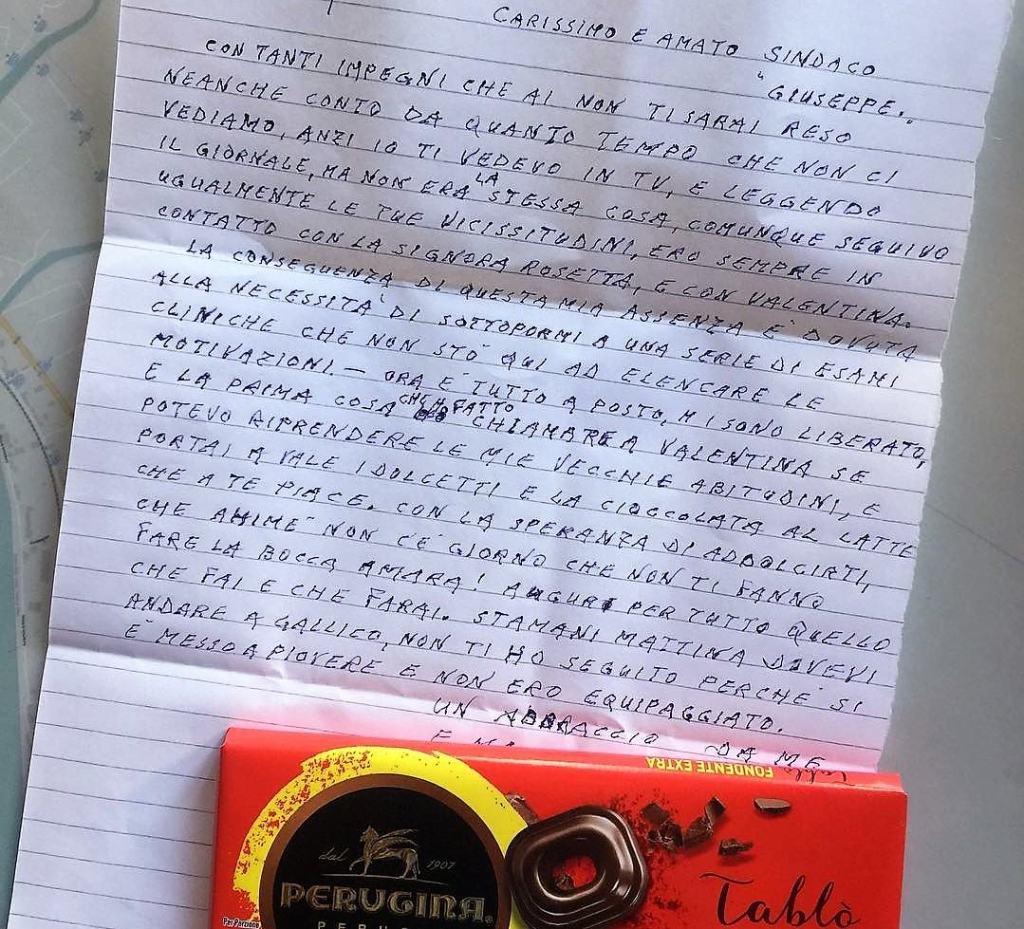 CARISSIMO E AMATO SINDACO
"GIUSEPPE."
CON TANTI IMPEGNI CHE AI NON TI SARAI RESO
NEANCHE CONTO DA QUANTO TEMPO CHE NON CI
VEDIAMO, ANZI IO TI VEDEVO IN TV, E LEGGENDO
IL GIORNALE, MA NON ERA LA STESSA COSA, COMUNQUE SEGUIVO
UGUALMENTE LE TUE VICISSITUDINI, ERO SEMPRE IN
CONTATTO CON LA SIGNORA ROSETTA, E CON VALENTINA.
LA CONSEGUENZA DI QUESTA MIA ASSENZA E' DOVUTA
ALLA NECESSITA' DI SOTTOPORMI A UNA SERIE DI ESAMI
CLINICHE CHE NON STO' QUI AD ELENCARE LE
MOTIVAZIONI. — ORA E' TUTTO A POSTO, MI SONO LIBERATO,
E LA PRIMA COSA CHE HO FATTO CHIAMARE A VALENTINA SE
POTEVO RIPRENDERE LE MIE VECCHIE ABITUDINI, E
PORTAI A VALE I DOLCETTI E LA CIOCCOLATA AL LATTE
CHE A TE PIACE. CON LA SPERANZA DI ADDOLCIRTI,
CHE AHIME' NON C'E' GIORNO CHE NON TI FANNO
FARE LA BOCCA AMARA! AUGURI PER TUTTO QUELLO
CHE FAI E CHE FARAI. STAMANI MATTINA DOVEVI
ANDARE A GALLICO, NON TI HO SEGUITO PERCHE' SI
E' MESSO A PIOVERE E NON ERO EQUIPAGGIATO.
UN ABBRACCIO DA ME
FONDENTE EXTRA
dal 1907
PERUGINA®
Tablò
Per Porzione